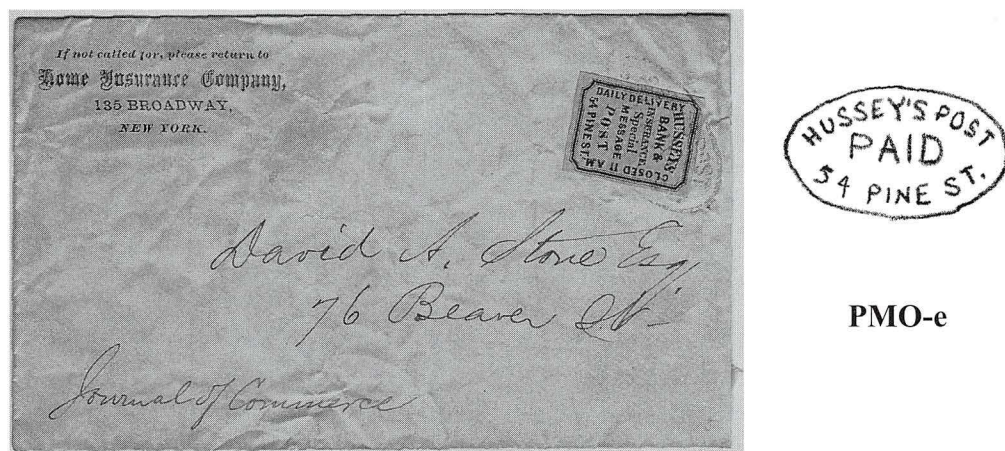 If not called for, please return to
Home Insurance Company,
135 BROADWAY,
NEW YORK.
DAILY DELIVERY
HUSSEY'S
BANK &
INSURANCE
Special
MESSAGE
POST
54 PINE ST.
CLOSED 11 AM.
POST
David A. Stone Esq
76 Beaver St
Journal of Commerce
HUSSEY'S POST
PAID
54 PINE ST.
PMO-e